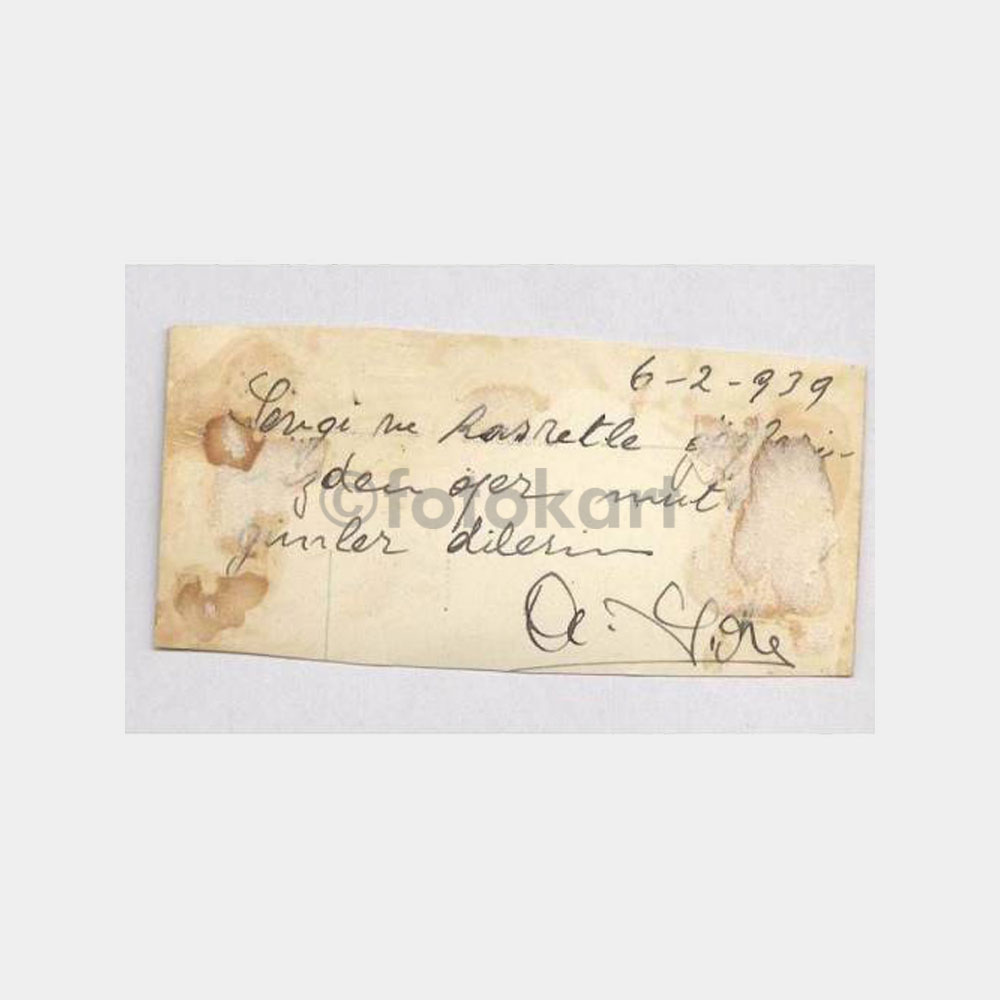 6-2-939
Sevgi ve hasretle
zden öper mut
günler dilerim
©fotokart